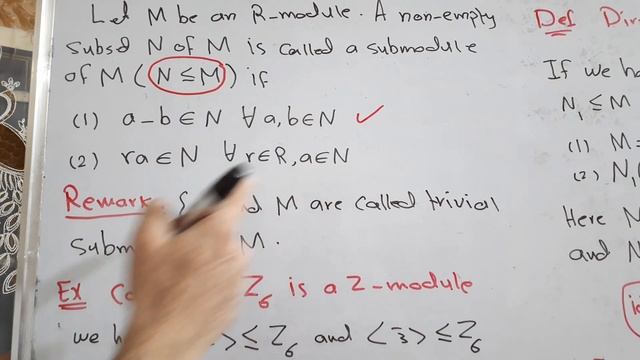 Let M be an R-module. A non-empty
Subsd N of M is called a submodule
of M (N ≤ M) if
(1) a-b ∈ N ∀ a,b ∈ N ✓
(2) ra ∈ N ∀ r ∈ R, a ∈ N
Remark M are called trivial
Subm M.
Ex Z₆ is a Z-module
we > ≤ Z₆ and <3̄> ≤ Z₆
Def
If we
N₁ ≤ M
(1) M=
(2) N₁
Here
and